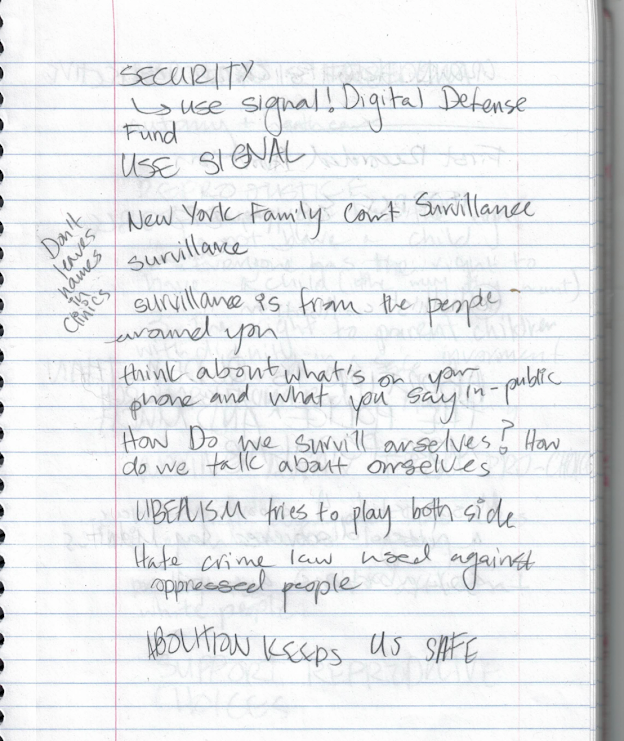 SECURITY
↳ use signal! Digital Defense
Fund
USE SIGNAL
New York Family Court Survillance
survillance
Don't
leaves
names
in
clinics
survillance is from the people
around you
think about what's on your
phone and what you say in-public
How Do we survill ourselves? How
do we talk about ourselves
LIBERALISM tries to play both side
Hate crime law used against
oppressed people
ABOLITION KEEPS US SAFE